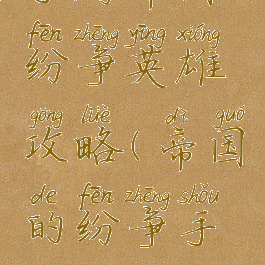 fēn zhēng yīng xióng
纷争英雄
gōng lüè dì guó
攻略(帝国
de fēn zhēng shǒu
的纷争手